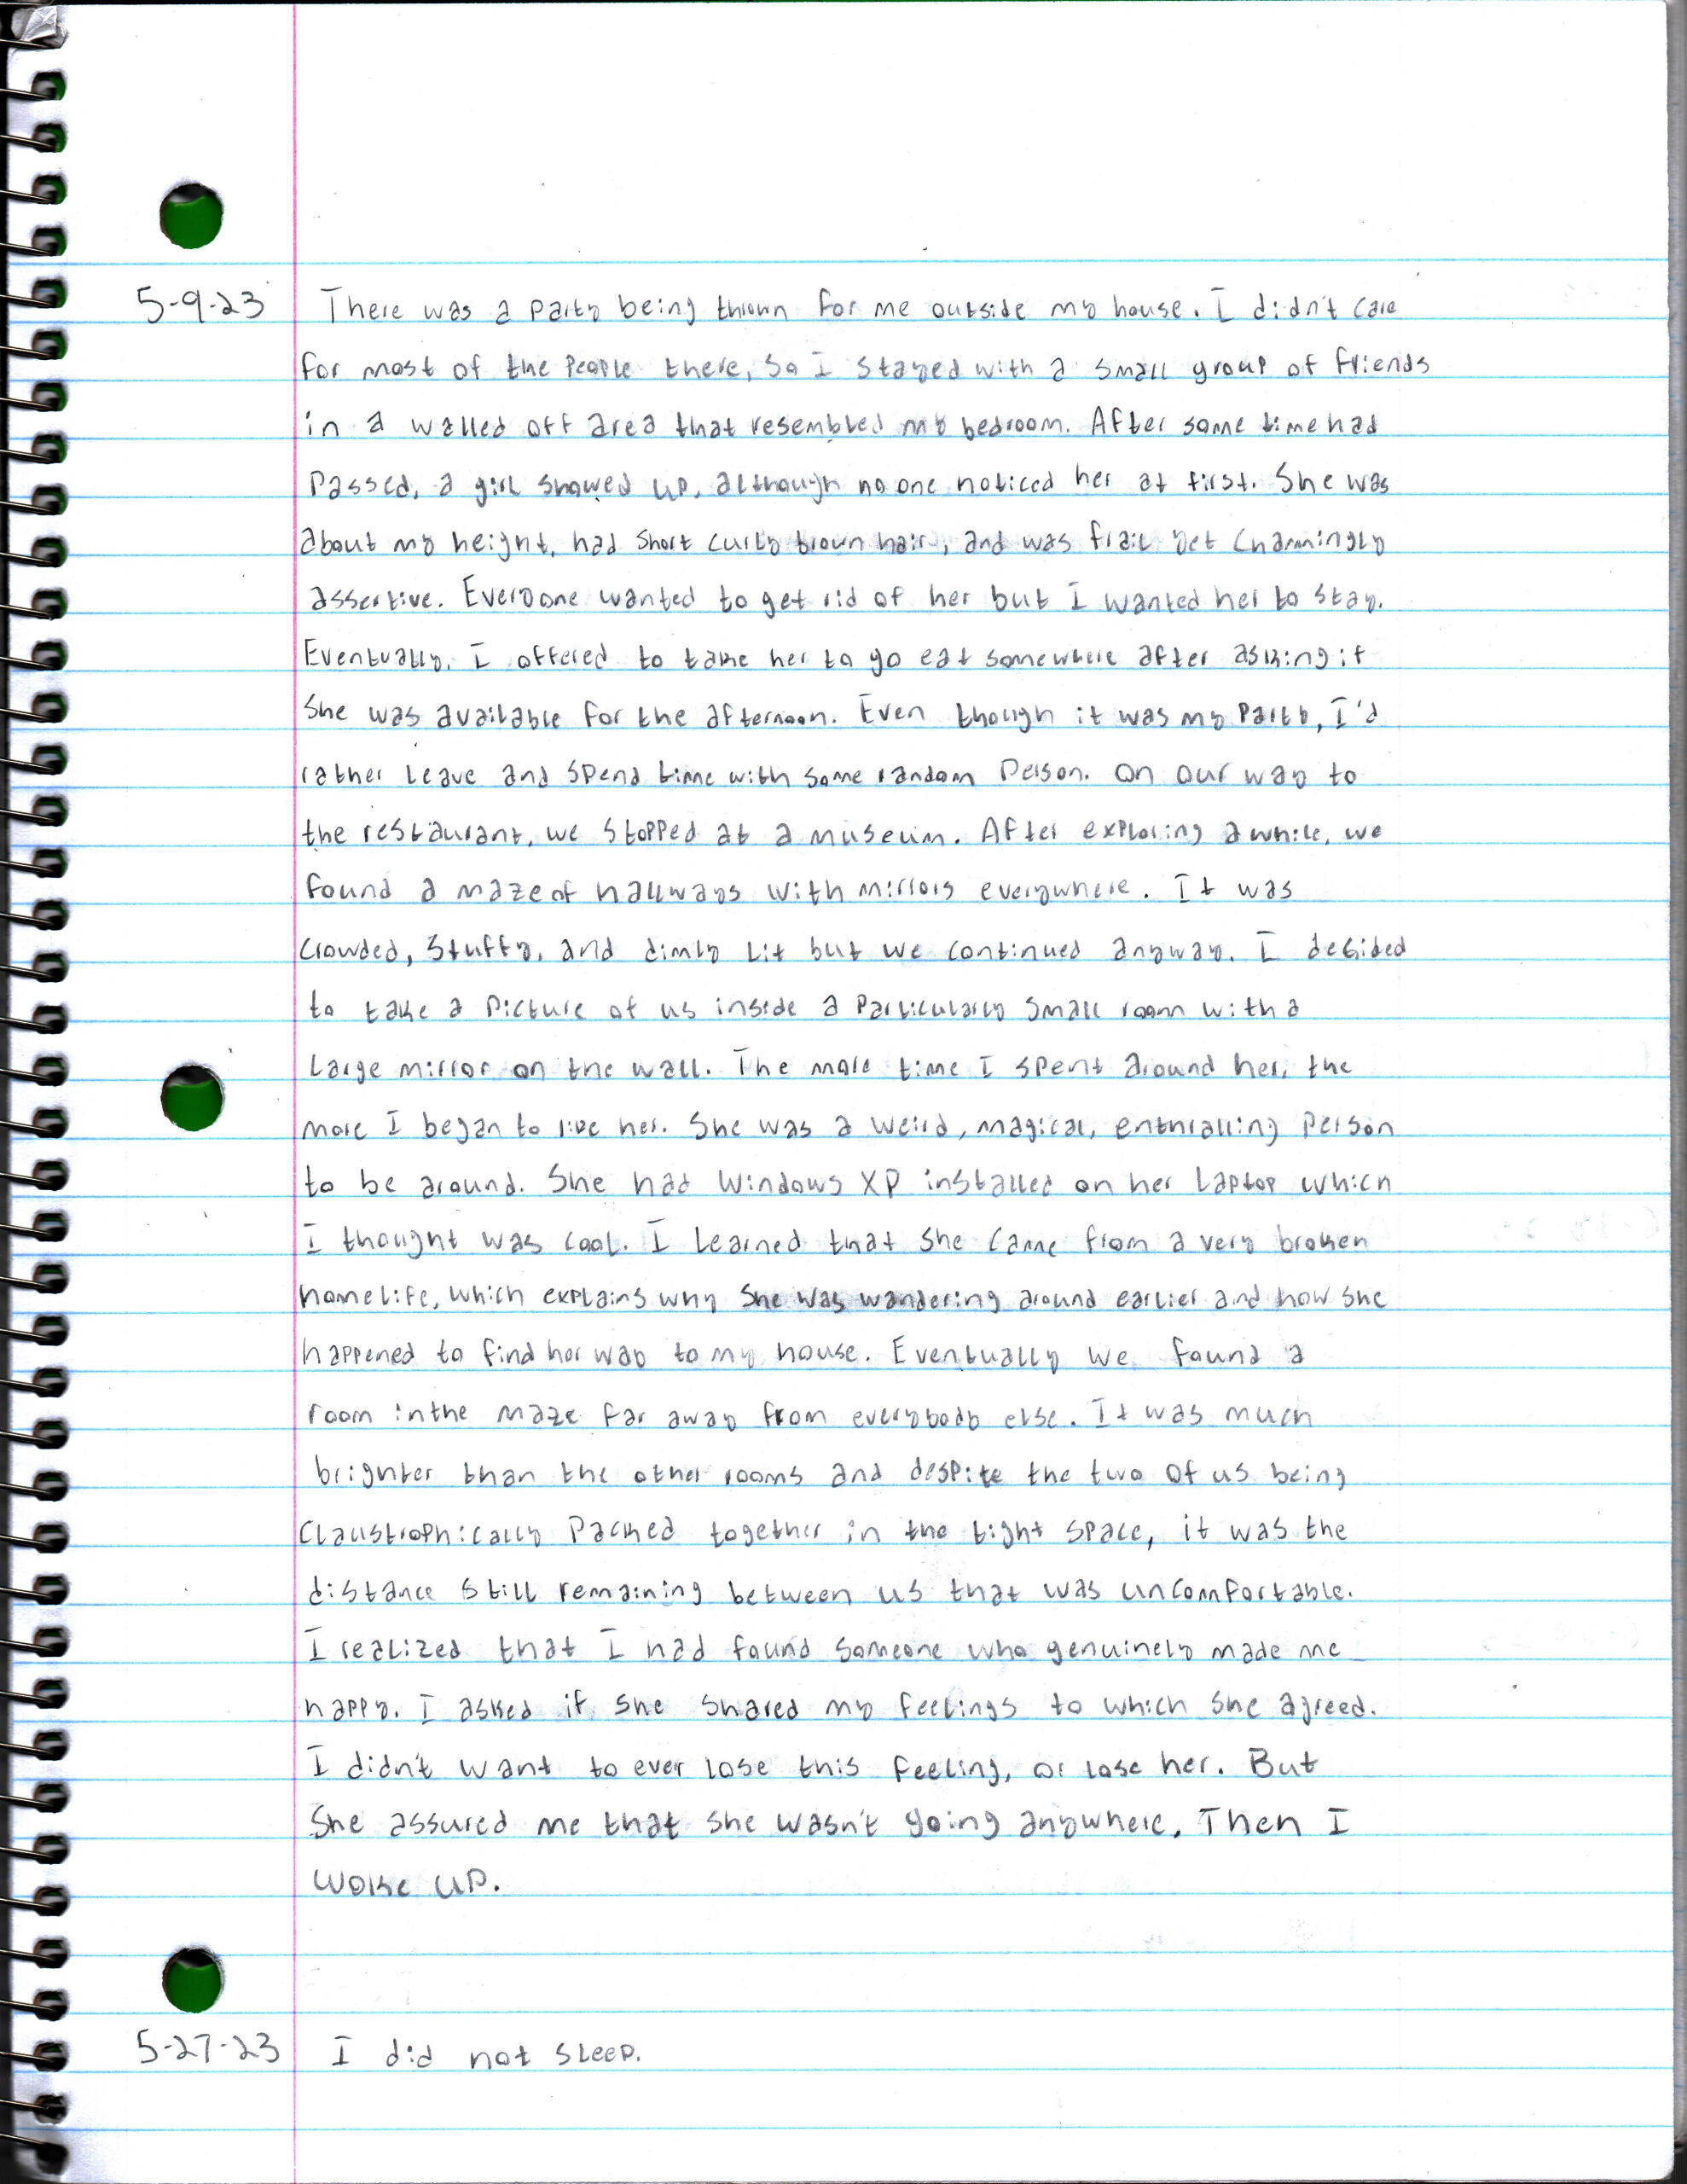 5-9-23 There was a party being thrown for me outside my house. I didn't care
for most of the people there, so I stayed with a small group of friends
in a walled off area that resembled my bedroom. After some time had
passed, a girl showed up, although no one noticed her at first. She was
about my height, had short curly brown hair, and was frail yet charmingly
assertive. Everyone wanted to get rid of her but I wanted her to stay.
Eventually, I offered to take her to go eat somewhere after asking if
she was available for the afternoon. Even though it was my party, I'd
rather leave and spend time with some random person. On our way to
the restaurant, we stopped at a museum. After exploring awhile, we
found a maze of hallways with mirrors everywhere. It was
crowded, stuffy, and dimly lit but we continued anyway. I decided
to take a picture of us inside a particularly small room with a
large mirror on the wall. The more time I spent around her, the
more I began to like her. She was a weird, magical, enthralling person
to be around. She had Windows XP installed on her laptop which
I thought was cool. I learned that she came from a very broken
homelife, which explains why she was wandering around earlier and how she
happened to find her way to my house. Eventually we found a
room in the maze far away from everybody else. It was much
brighter than the other rooms and despite the two of us being
claustrophically packed together in the tight space, it was the
distance still remaining between us that was uncomfortable.
I realized that I had found someone who genuinely made me
happy. I asked if she shared my feelings to which she agreed.
I didn't want to ever lose this feeling, or lose her. But
she assured me that she wasn't going anywhere. Then I
woke up.
5-27-23 I did not sleep.